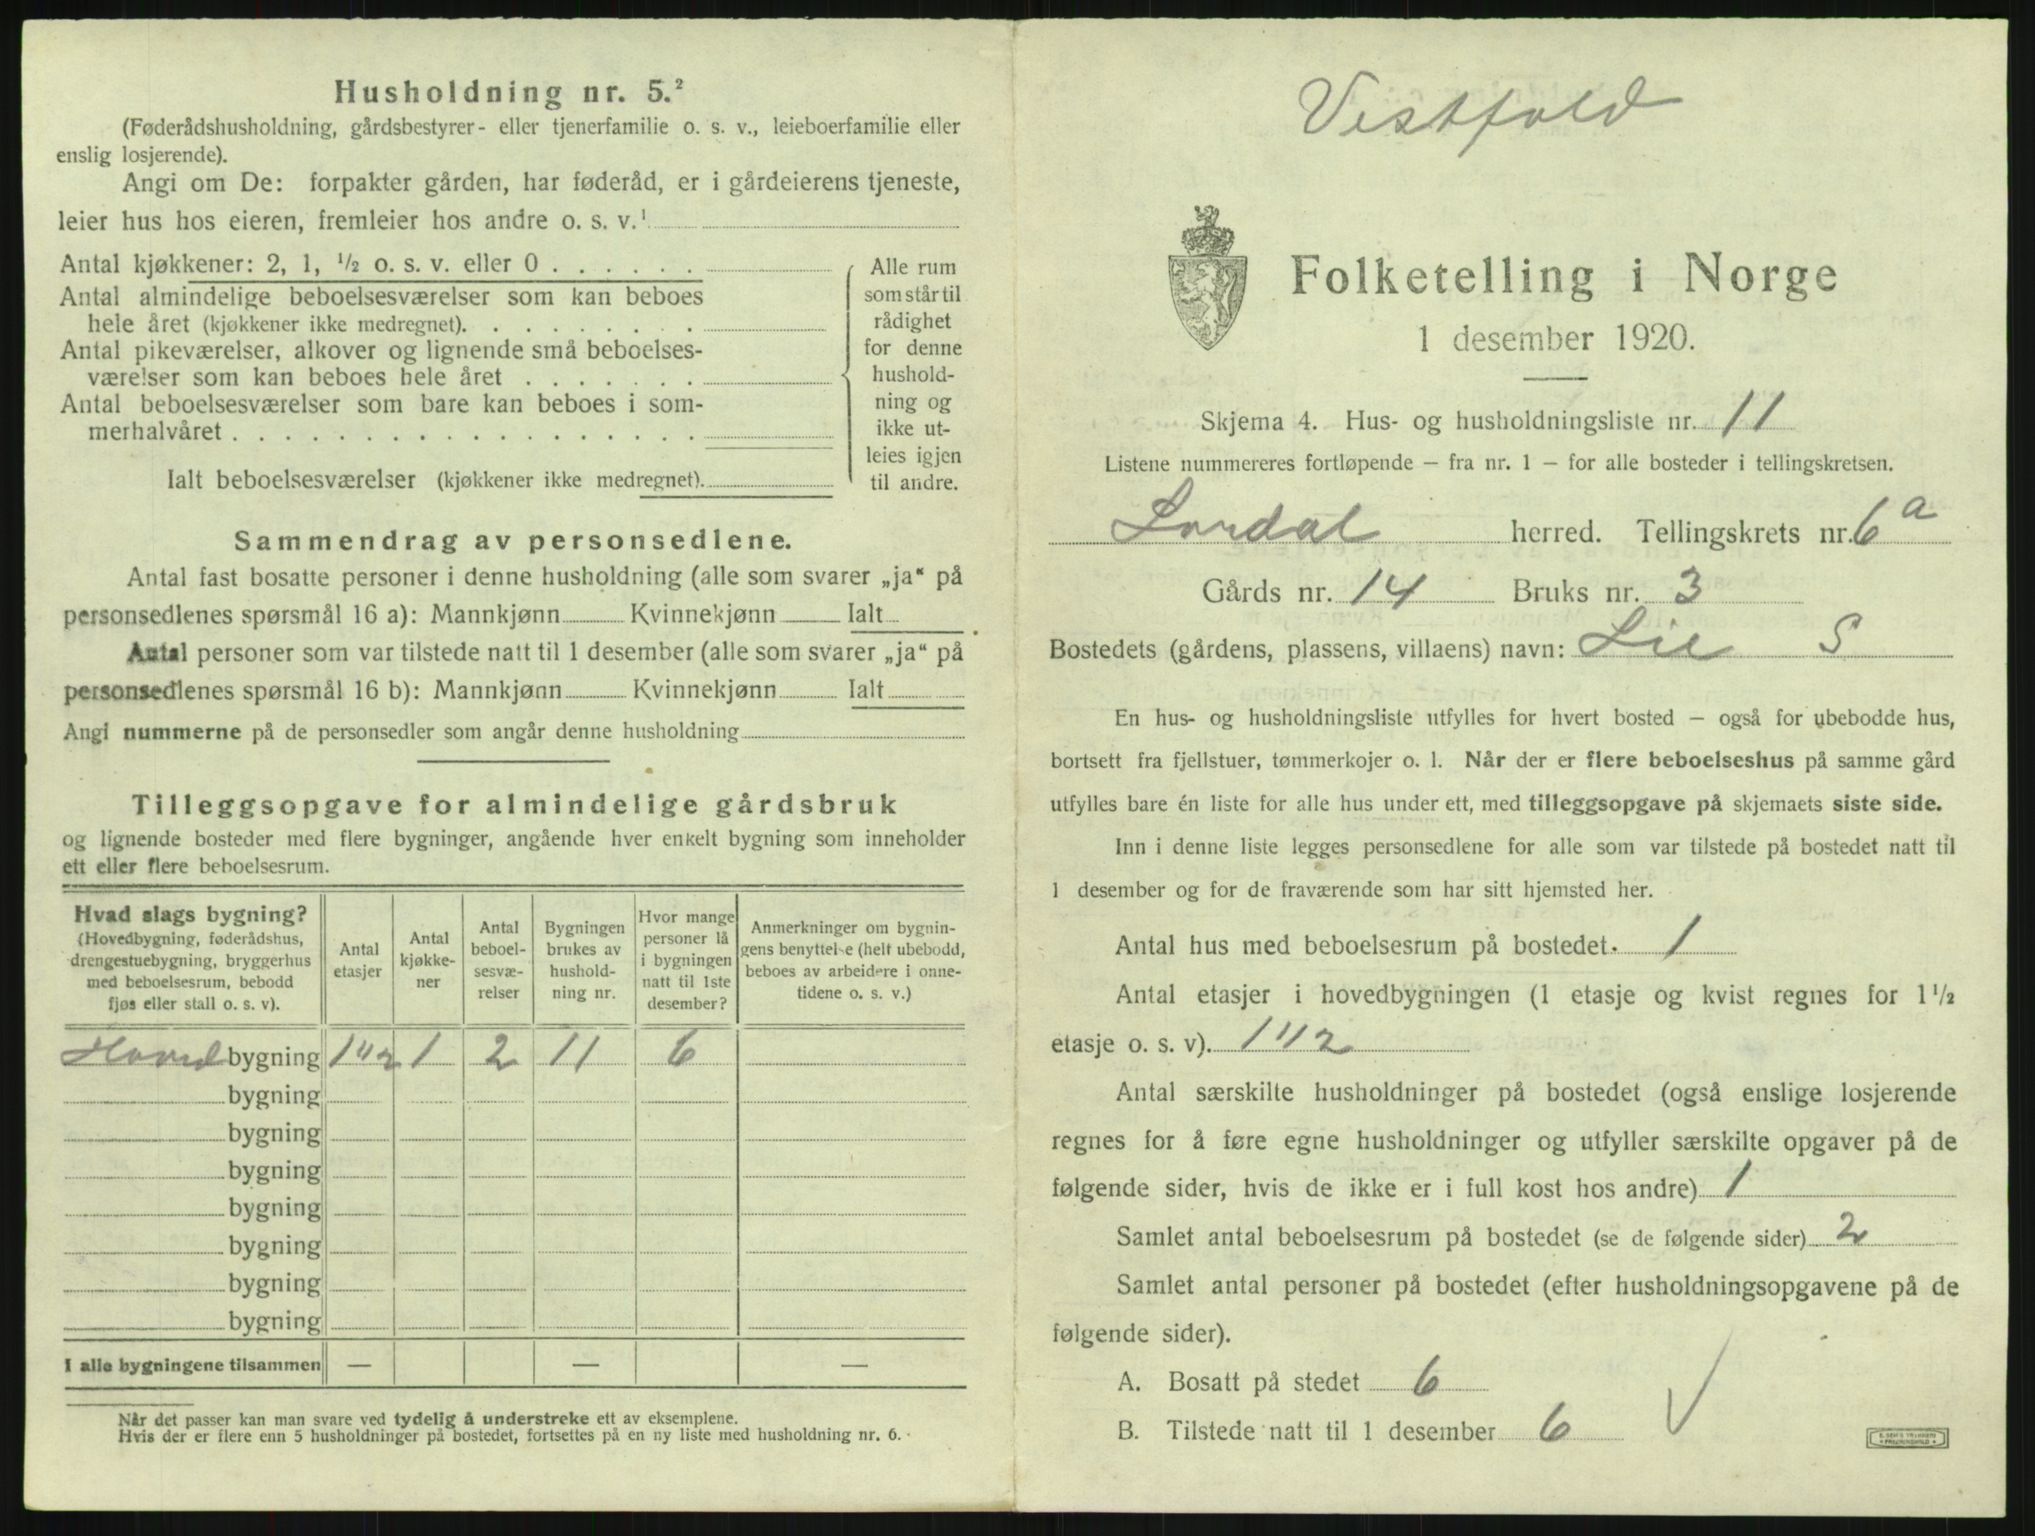 Husholdning nr. 5.²
(Føderådshusholdning, gårdsbestyrer- eller tjenerfamilie o. s. v., leieboerfamilie eller
enslig losjerende).
Angi om De: forpakter gården, har føderåd, er i gårdeierens tjeneste,
leier hus hos eieren, fremleier hos andre o. s. v.¹
Antal kjøkkener: 2, 1, ½ o. s. v. eller 0 . . . . . .
Antal almindelige beboelsesværelser som kan beboes
hele året (kjøkkener ikke medregnet). . . . . . . . .
Antal pikeværelser, alkover og lignende små beboelses-
værelser som kan beboes hele året . . . . . . .
Antal beboelsesværelser som bare kan beboes i som-
merhalvåret . . . . . . . . . . . . . . . . . .
Ialt beboelsesværelser (kjøkkener ikke medregnet).
Alle rum
som står til
rådighet
for denne
hushold-
ning og
ikke ut-
leies igjen
til andre.
Sammendrag av personsedlene.
Antal fast bosatte personer i denne husholdning (alle som svarer „ja“ på
personsedlenes spørsmål 16 a): Mannkjønn Kvinnekjønn Ialt
Antal personer som var tilstede natt til 1 desember (alle som svarer „ja“ på
personsedlenes spørsmål 16 b): Mannkjønn Kvinnekjønn Ialt
Angi nummerne på de personsedler som angår denne husholdning
Tilleggsopgave for almindelige gårdsbruk
og lignende bosteder med flere bygninger, angående hver enkelt bygning som inneholder
ett eller flere beboelsesrum.
Hvad slags bygning?
(Hovedbygning, føderådshus,
drengestuebygning, bryggerhus
med beboelsesrum, bebodd
fjøs eller stall o. s. v).
Antal
etasjer
Antal
kjøkke-
ner
Antal
beboel-
sesvæ-
relser
Bygningen
brukes av
hushold-
ning nr.
Hvor mange
personer lå
i bygningen
natt til 1ste
desember?
Anmerkninger om bygnin-
gens benyttelse (helt ubebodd,
beboes av arbeidere i onne-
tidene o. s. v.)
Hoved bygning 1 1/2 1 2 11 6
bygning
bygning
bygning
bygning
bygning
bygning
bygning
I alle bygningene tilsammen — — —
Når det passer kan man svare ved tydelig å understreke ett av eksemplene.
Hvis der er flere enn 5 husholdninger på bostedet, fortsettes på en ny liste med husholdning nr. 6.
Vestfold
Folketelling i Norge
1 desember 1920.
Skjema 4. Hus- og husholdningsliste nr. 11
Listene nummereres fortløpende – fra nr. 1 – for alle bosteder i tellingskretsen.
Lardal herred. Tellingskrets nr. 6 a
Gårds nr. 14 Bruks nr. 3
Bostedets (gårdens, plassens, villaens) navn: Lie S
En hus- og husholdningsliste utfylles for hvert bosted – også for ubebodde hus,
bortsett fra fjellstuer, tømmerkojer o. l. Når der er flere beboelseshus på samme gård
utfylles bare én liste for alle hus under ett, med tilleggsopgave på skjemaets siste side.
Inn i denne liste legges personsedlene for alle som var tilstede på bostedet natt til
1 desember og for de fraværende som har sitt hjemsted her.
Antal hus med beboelsesrum på bostedet. 1
Antal etasjer i hovedbygningen (1 etasje og kvist regnes for 1 ½
etasje o. s. v). 1 1/2
Antal særskilte husholdninger på bostedet (også enslige losjerende
regnes for å føre egne husholdninger og utfyller særskilte opgaver på de
følgende sider, hvis de ikke er i full kost hos andre) 1
Samlet antal beboelsesrum på bostedet (se de følgende sider) 2
Samlet antal personer på bostedet (efter husholdningsopgavene på de
følgende sider).
A. Bosatt på stedet 6
B. Tilstede natt til 1 desember 6